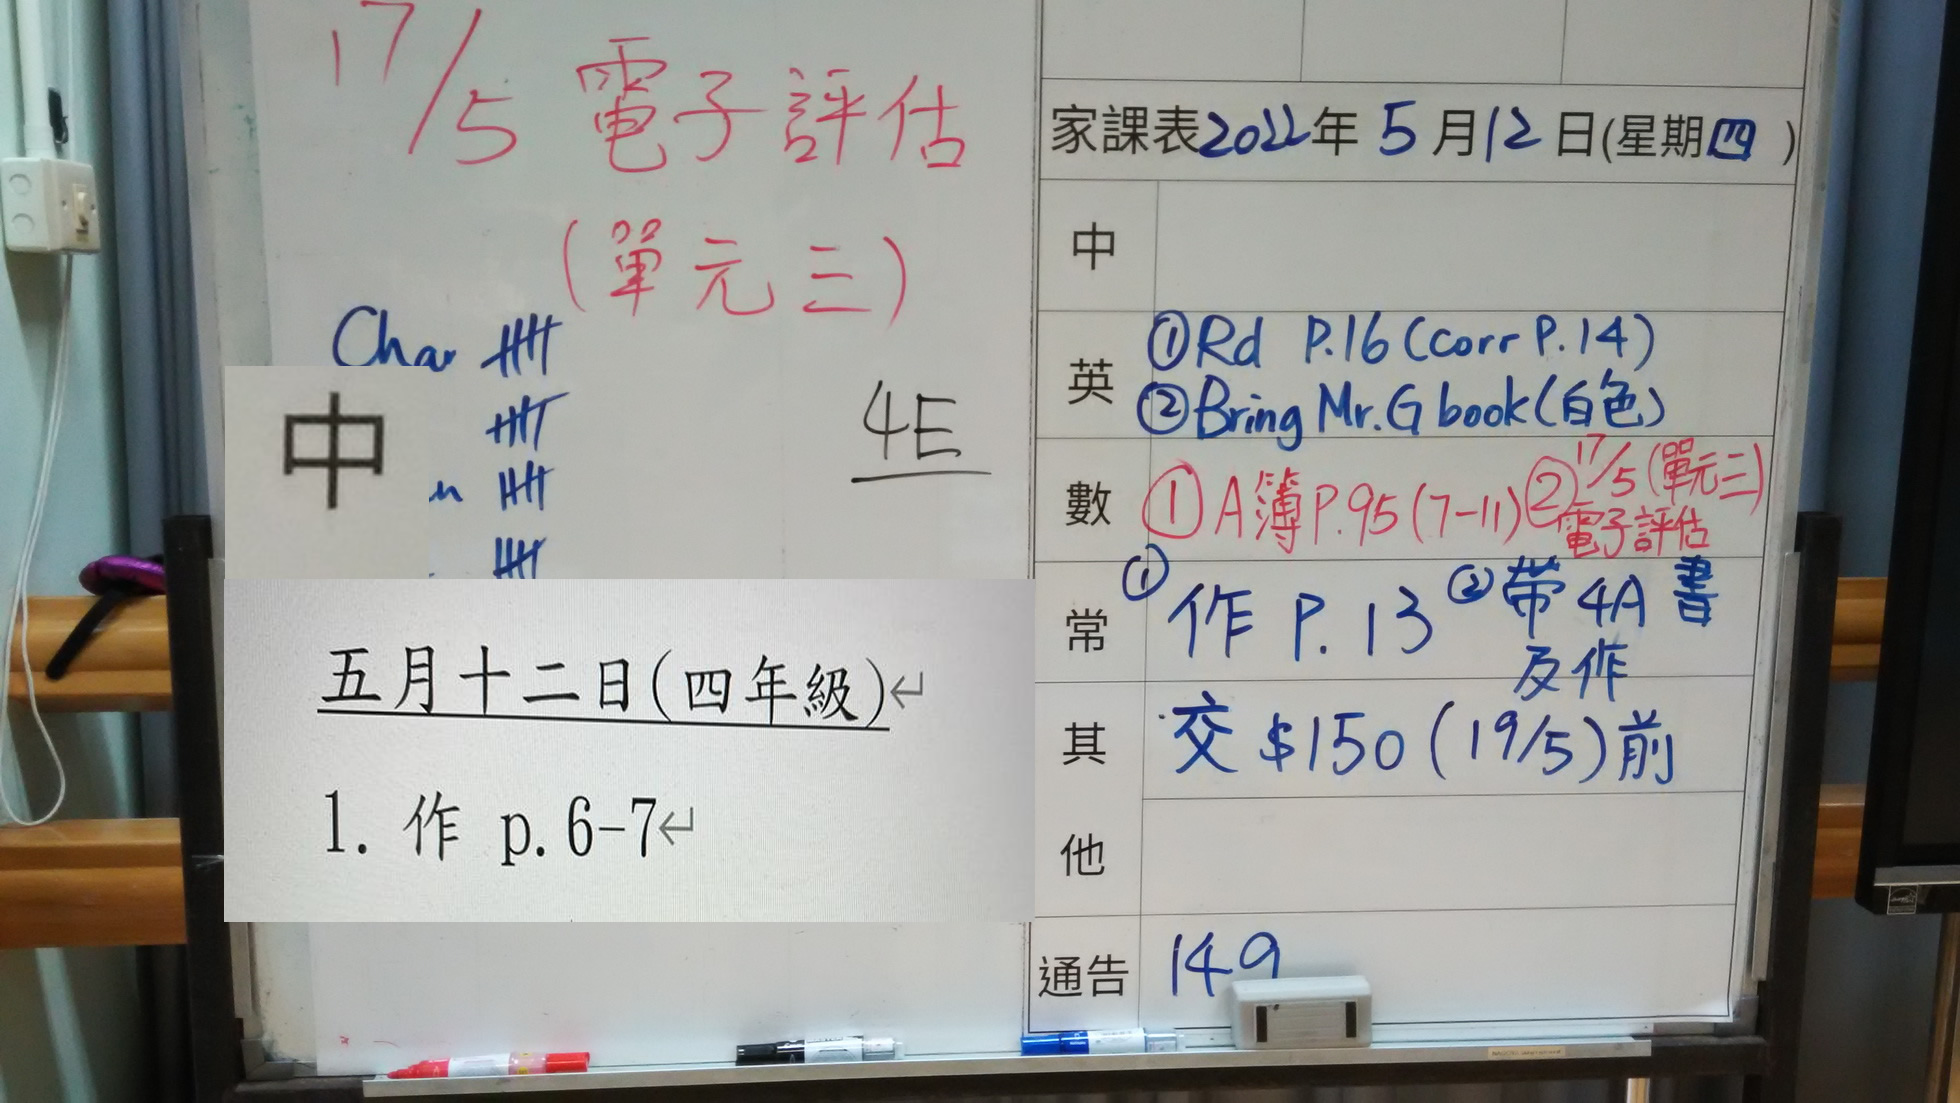 17/5 電子評估
(單元三)
4E
中
五月十二日(四年級)↵
1. 作 p.6-7↵
家課表2022年 5 月12 日(星期四 )
中
英
①Rd P.16 (Corr P.14)
②Bring Mr.G book(白色)
數
①A簿P.95(7-11)
②17/5(單元三)
電子評估
常
①作 P.13
②带 4A 書
及作
其
交 $150 (19/5)前
他
通告
149